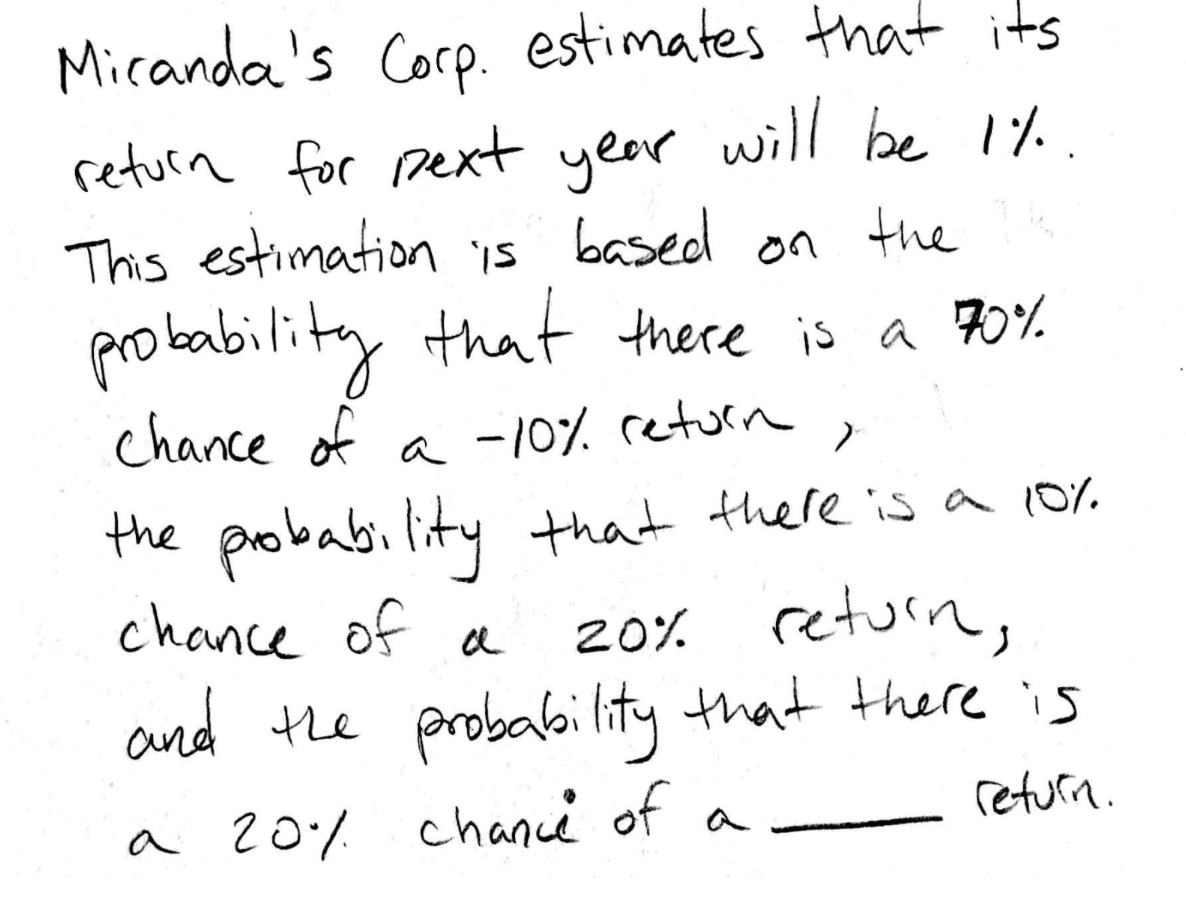 Miranda's Corp. estimates that its
return for next year will be 1%.
This estimation is based on the
probability that there is a 70%
chance of a -10% return,
the probability that there is a 10%
chance of a 20% return,
and the probability that there is
a 20% chance of a ______ return.